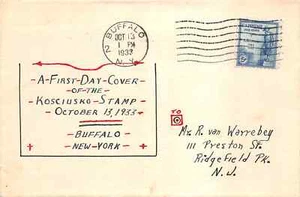 BUFFALO
2
OCT 13
1 PM
1933
N.Y.
-A-FIRST-DAY-COVER
-OF-THE-
KOSCIUSKO-STAMP-
OCTOBER 13, 1933-
-BUFFALO-
-NEW-YORK-
TO
Mr. R. van Warrebey
111 Preston St.
Ridgefield Pk.
N.J.